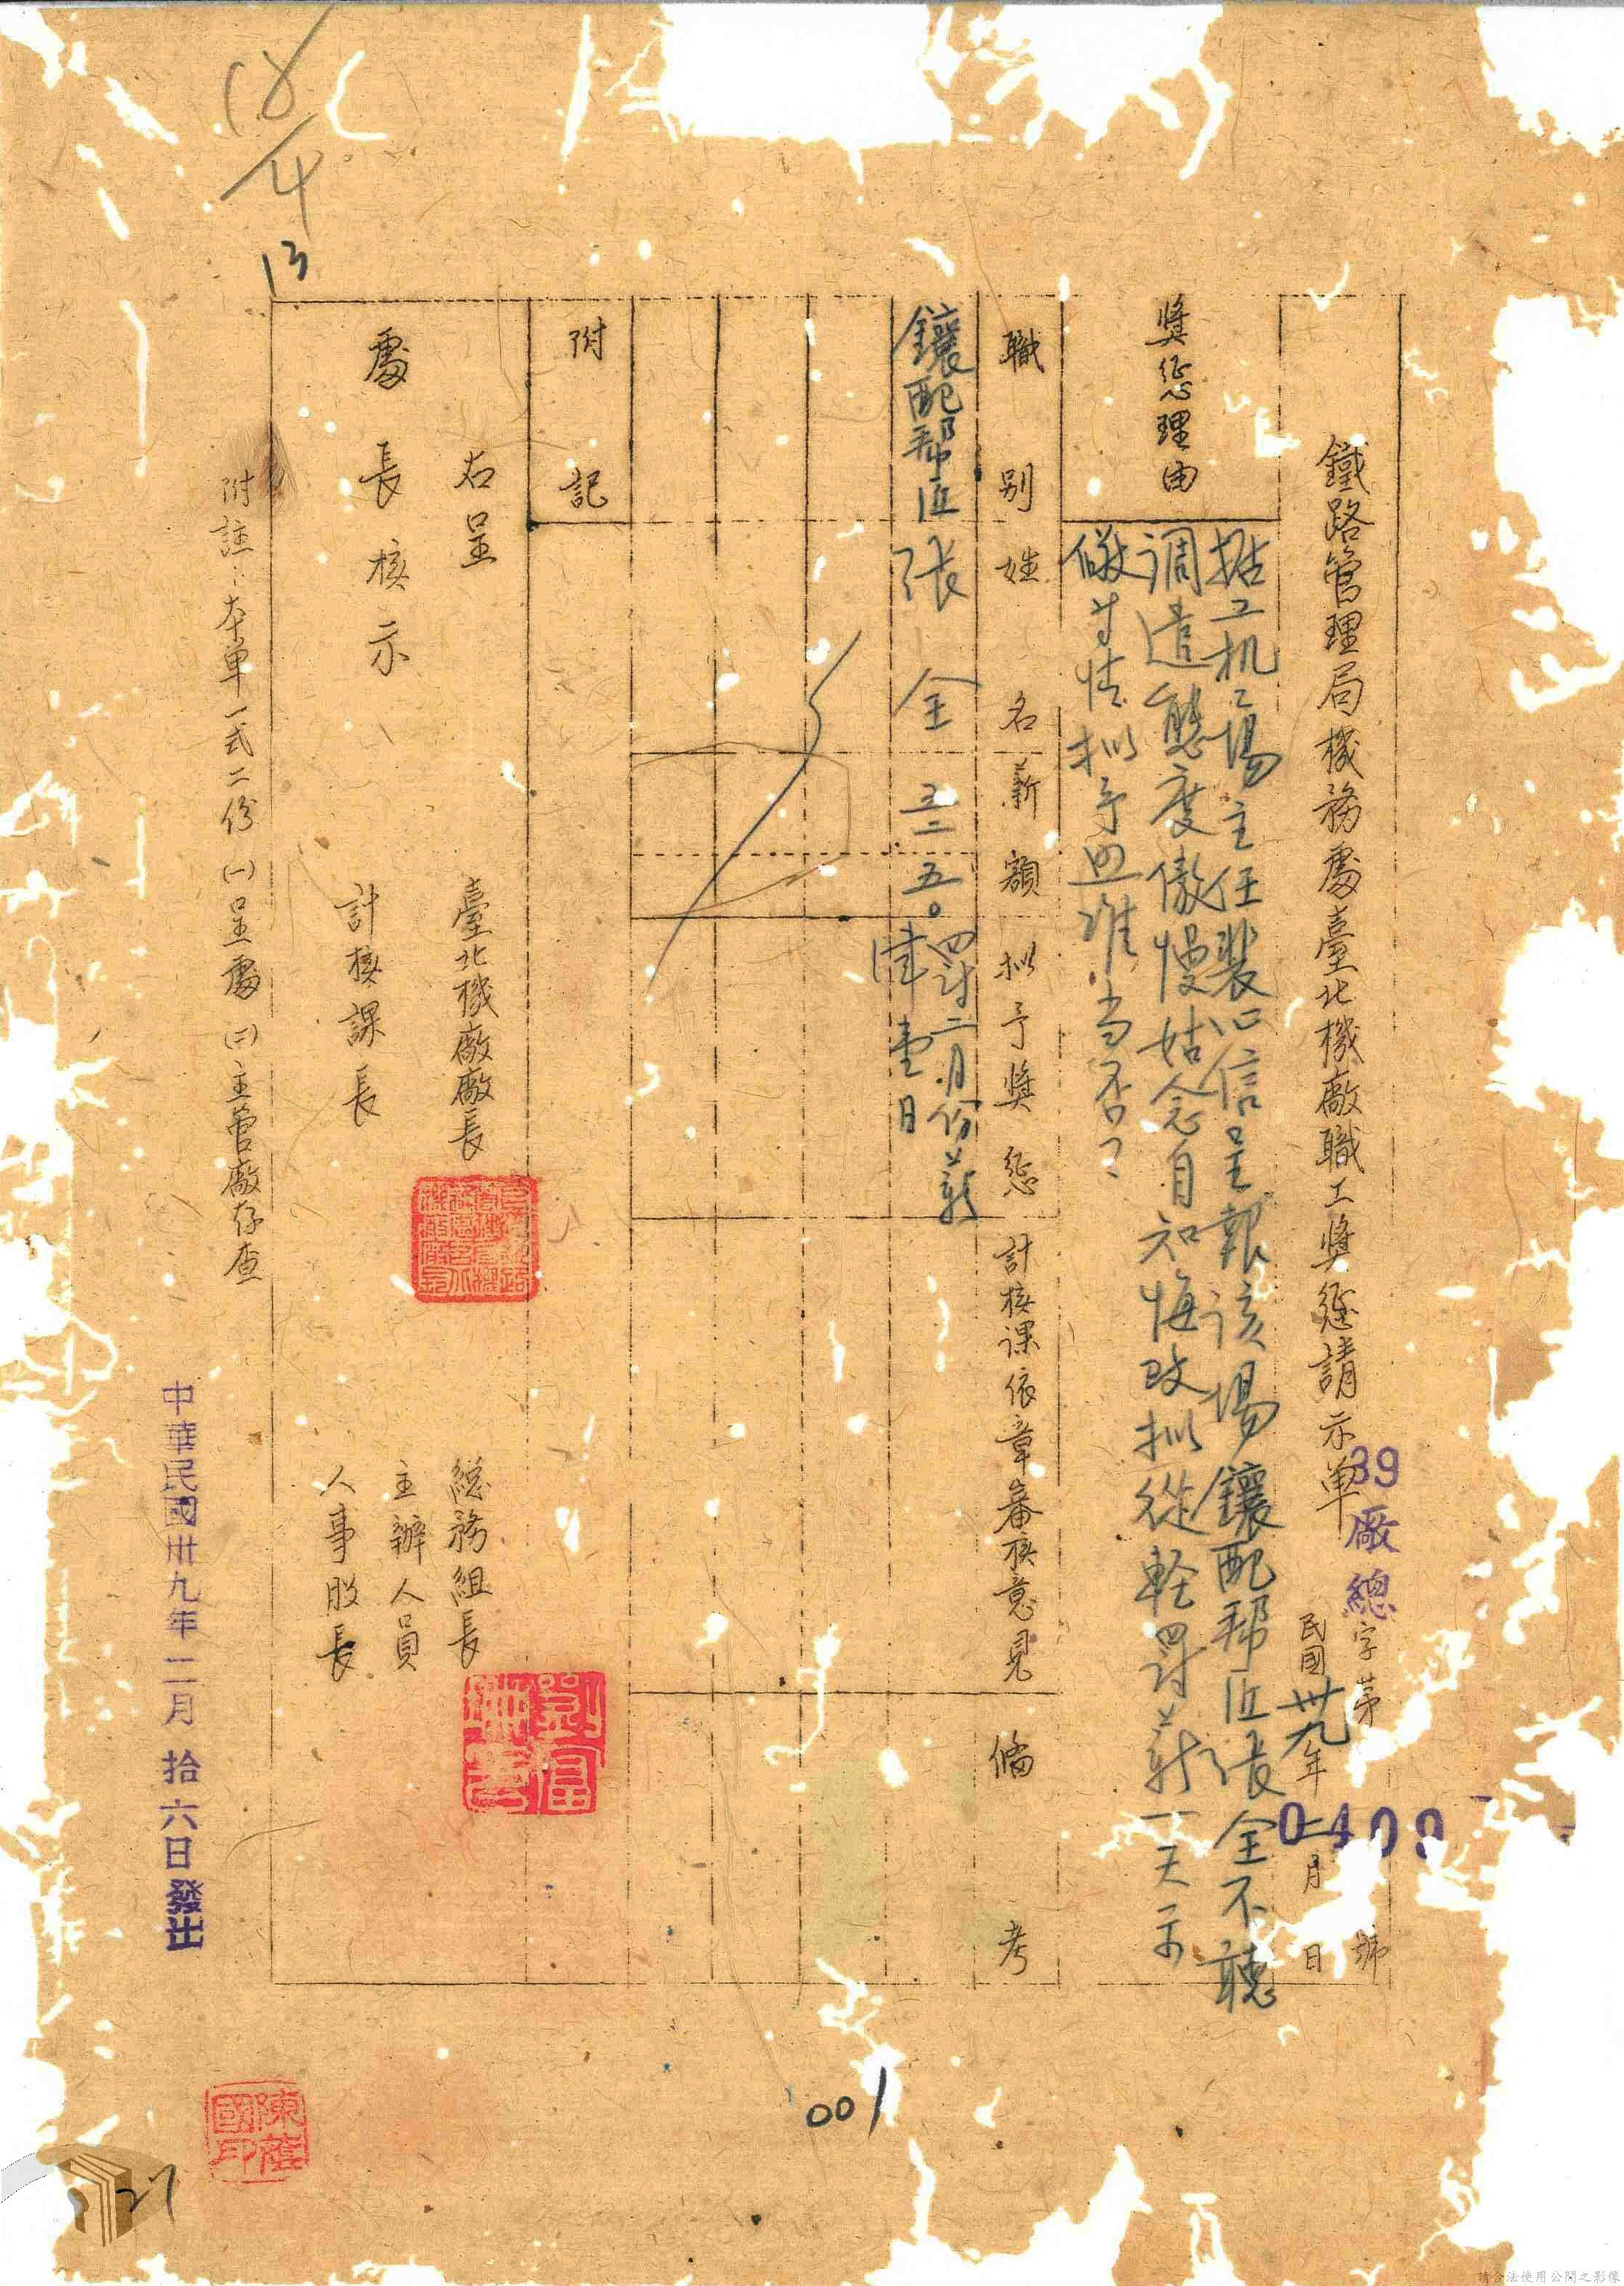 鐵路管理局機務處臺北機廠職工獎懲請示單
39廠總字第0409號
民國卅九年二月 日
獎懲理由
据工机工場主任裴以信呈報該場鑲配帮匠張全不聽
调遣態度傲慢姑念自知悔改拟從軽罰薪一天示
儆等情拟予照准当否？
職別
姓名
薪額
拟予獎懲
計核課依章審核意見
備考
鑲配帮匠
張全
三二五○
罰二月份薪津壹日
附記
右呈
處長核示
臺北機廠廠長
計核課長
總務組長
主辦人員
人事股長
附註：本單一式二份（一）呈處（二）主管廠存查
中華民國卅九年二月拾六日發出
18/4
13
001
27
請合法使用公開之影像